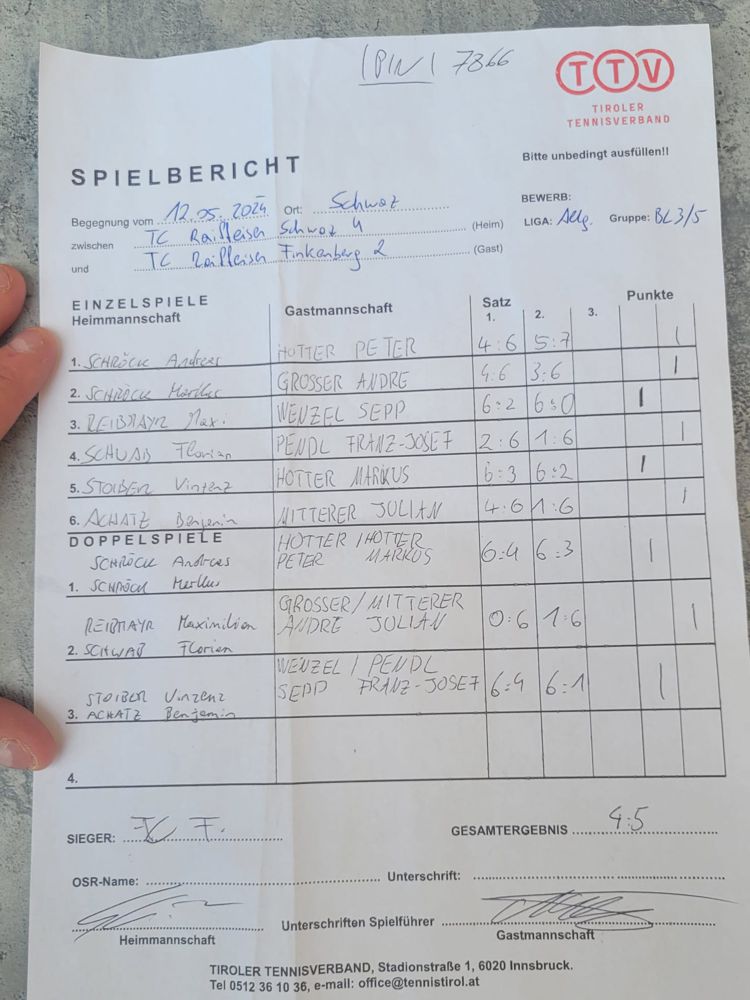 (PIN) 7866
TTV
TIROLER
TENNISVERBAND
SPIELBERICHT
Bitte unbedingt ausfüllen!!
Begegnung vom 12.05.2024 Ort: Schwaz
BEWERB:
zwischen TC Raiffeisen Schwaz 4 (Heim) LIGA: Allg. Gruppe: BL3/5
und TC Raiffeisen Finkenberg 2 (Gast)
EINZELSPIELE
Heimmannschaft Gastmannschaft Satz 1. 2. 3. Punkte
1. SCHRÖCK Andreas HOTTER PETER 4:6 5:7 |
2. SCHRÖCK Markus GROSSER ANDRE 4:6 3:6 |
3. REIBMAYR Maxi WENZEL SEPP 6:2 6:0 |
4. SCHWAB Florian PENDL FRANZ-JOSEF 2:6 1:6 |
5. STOIBER Vinzenz HOTTER MARKUS 6:3 6:2 |
6. ACHATZ Benjamin MITTERER JULIAN 4:6 1:6 |
DOPPELSPIELE
SCHRÖCK Andreas HOTTER / HOTTER
1. SCHRÖCK Markus PETER MARKUS 6:4 6:3 |
REIBMAYR Maximilian GROSSER / MITTERER
2. SCHWAB Florian ANDRE JULIAN 0:6 1:6 |
STOIBER Vinzenz WENZEL / PENDL
3. ACHATZ Benjamin SEPP FRANZ-JOSEF 6:4 6:1 |
4.
SIEGER: GESAMTERGEBNIS 4:5
OSR-Name: Unterschrift:
Unterschriften Spielführer
Heimmannschaft Gastmannschaft
TIROLER TENNISVERBAND, Stadionstraße 1, 6020 Innsbruck.
Tel 0512 36 10 36, e-mail: office@tennistirol.at